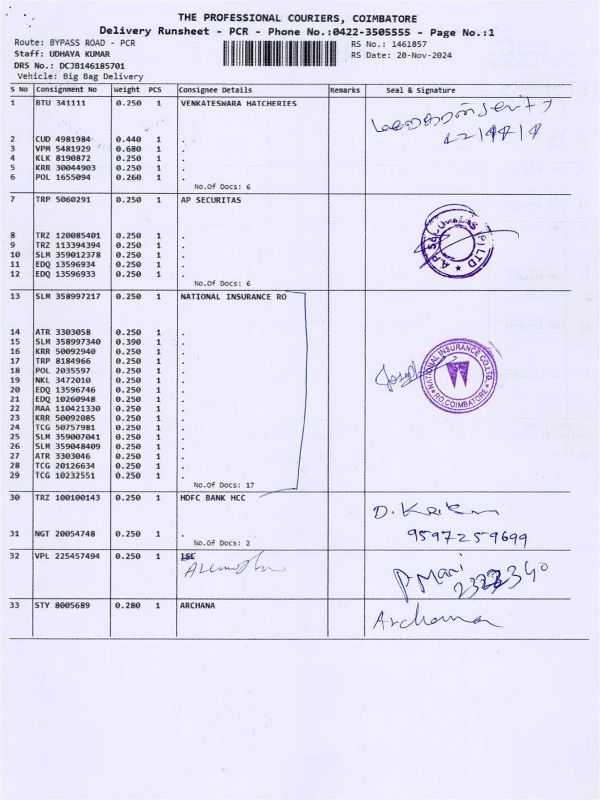 THE PROFESSIONAL COURIERS, COIMBATORE
Delivery Runsheet - PCR - Phone No.:0422-3505555 - Page No.:1
Route: BYPASS ROAD - PCR
RS No.: 1461857
Staff: UDHAYA KUMAR
RS Date: 20-Nov-2024
DRS No.: DCJB146185701
Vehicle: Big Bag Delivery
S No Consignment No Weight PCS Consignee Details Remarks Seal & Signature
1 BTU 341111 0.250 1 VENKATESHARA HATCHERIES
2 CUD 4981984 0.440 1 .
3 VPM 5481929 0.680 1 .
4 KLK 8190872 0.250 1 .
5 KRR 30044903 0.250 1 .
6 POL 1655094 0.260 1 .
No.Of Docs: 6
7 TRP 5060291 0.250 1 AP SECURITAS
8 TRZ 120085401 0.250 1 .
9 TRZ 113394394 0.250 1 .
10 SLM 359012378 0.250 1 .
11 EDQ 13596934 0.250 1 .
12 EDQ 13596933 0.250 1 .
No.Of Docs: 6
A.P. SECURITAS (P) LTD
13 SLM 358997217 0.250 1 NATIONAL INSURANCE RO
14 ATR 3303058 0.250 1 .
15 SLM 358997340 0.390 1 .
16 KRR 50092940 0.250 1 .
17 TRP 8184966 0.250 1 .
18 POL 2035597 0.250 1 .
19 NKL 3472010 0.250 1 .
20 EDQ 13596746 0.250 1 .
21 EDQ 10260948 0.250 1 .
22 MAA 110421330 0.250 1 .
23 KRR 50092085 0.250 1 .
24 TCG 50757981 0.250 1 .
25 SLM 359007041 0.250 1 .
26 SLM 359048409 0.250 1 .
27 ATR 3303046 0.250 1 .
28 TCG 20126634 0.250 1 .
29 TCG 10232551 0.250 1 .
No.Of Docs: 17
NATIONAL INSURANCE CO.LTD.
RO.COIMBATORE
Joseph
30 TRZ 100100143 0.250 1 HDFC BANK HCC
31 NGT 20054748 0.250 1 .
No.Of Docs: 2
9597259699
32 VPL 225457494 0.250 1
P. Mani
33 STY 8005689 0.280 1 ARCHANA
Archana